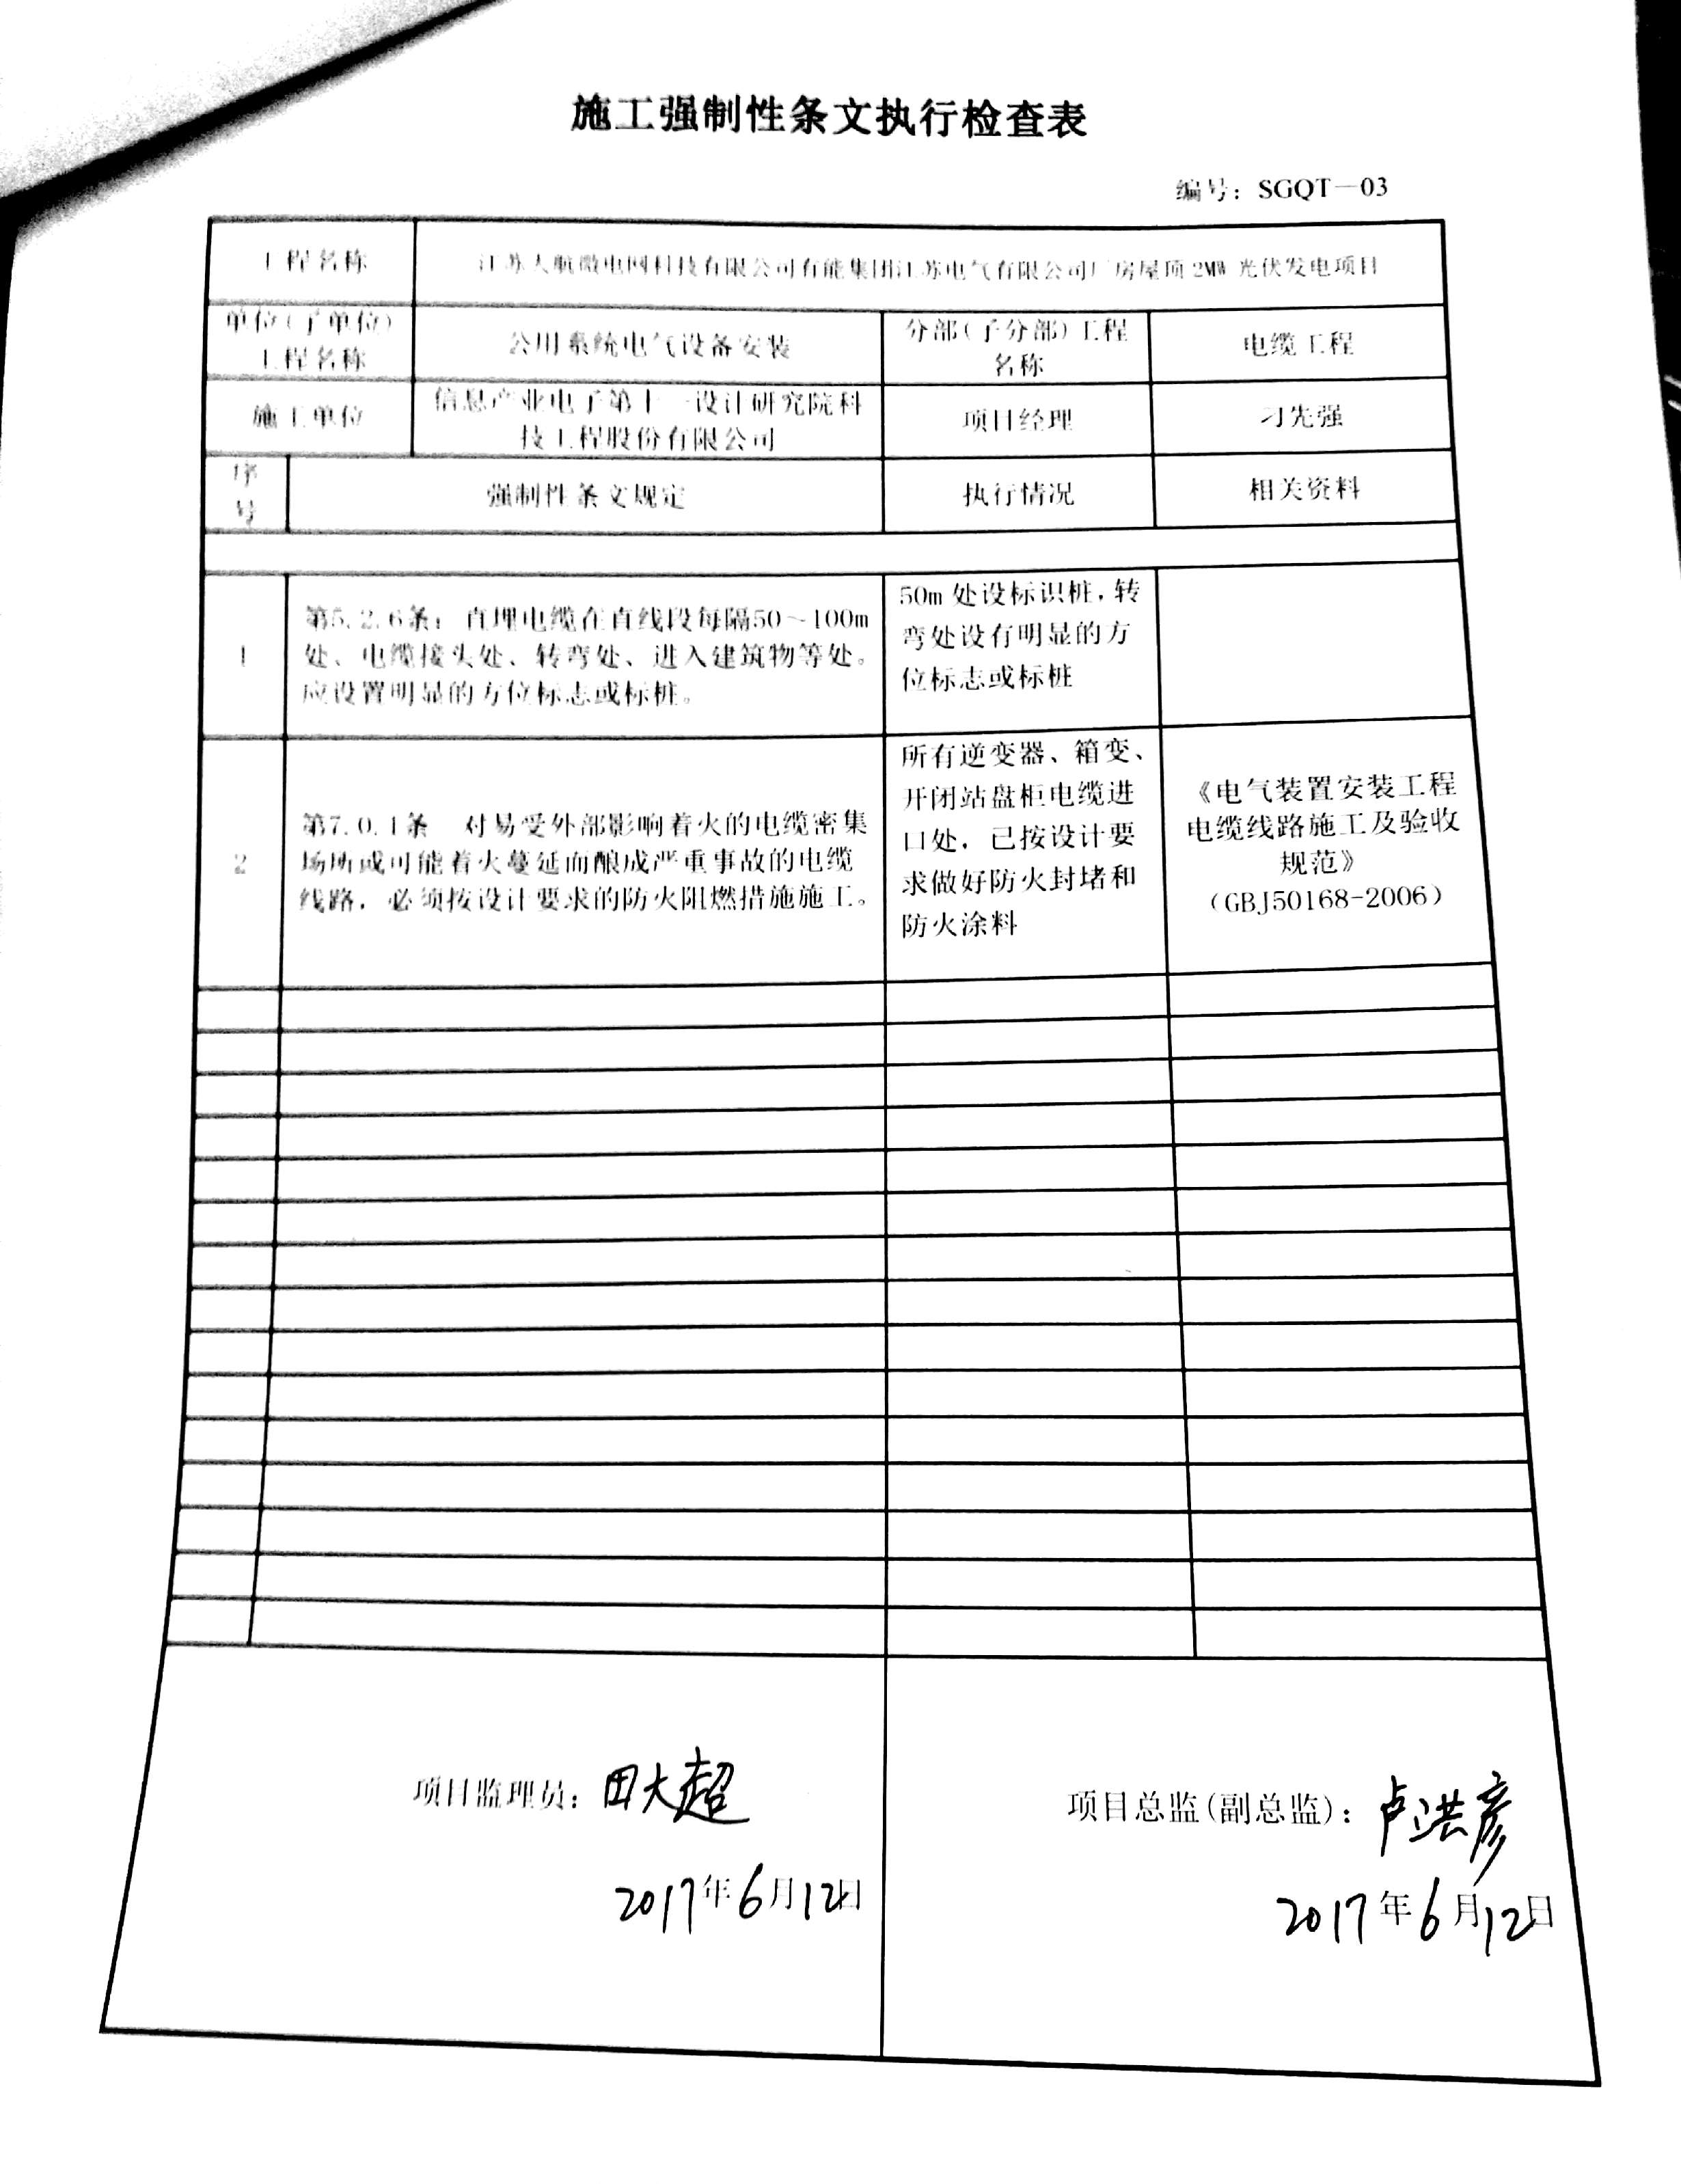 施工强制性条文执行检查表
编号：SGQT—03
工程名称
江苏天航微电网科技有限公司有能集团江苏电气有限公司厂房屋顶2MW光伏发电项目
单位(子单位)
工程名称
公用系统电气设备安装
分部(子分部)工程
名称
电缆工程
施工单位
信息产业电子第十一设计研究院科
技工程股份有限公司
项目经理
刁先强
序
号
强制性条文规定
执行情况
相关资料
1
第5.2.6条：直埋电缆在直线段每隔50～100m
处、电缆接头处、转弯处、进入建筑物等处。
应设置明显的方位标志或标桩。
50m处设标识桩，转
弯处设有明显的方
位标志或标桩
2
第7.0.1条 对易受外部影响着火的电缆密集
场所或可能着火蔓延而酿成严重事故的电缆
线路，必须按设计要求的防火阻燃措施施工。
所有逆变器、箱变、
开闭站盘柜电缆进
口处，已按设计要
求做好防火封堵和
防火涂料
《电气装置安装工程
电缆线路施工及验收
规范》
(GBJ50168-2006)
项目监理员：田大超
2017年6月12日
项目总监(副总监)：卢洪彦
2017年6月12日